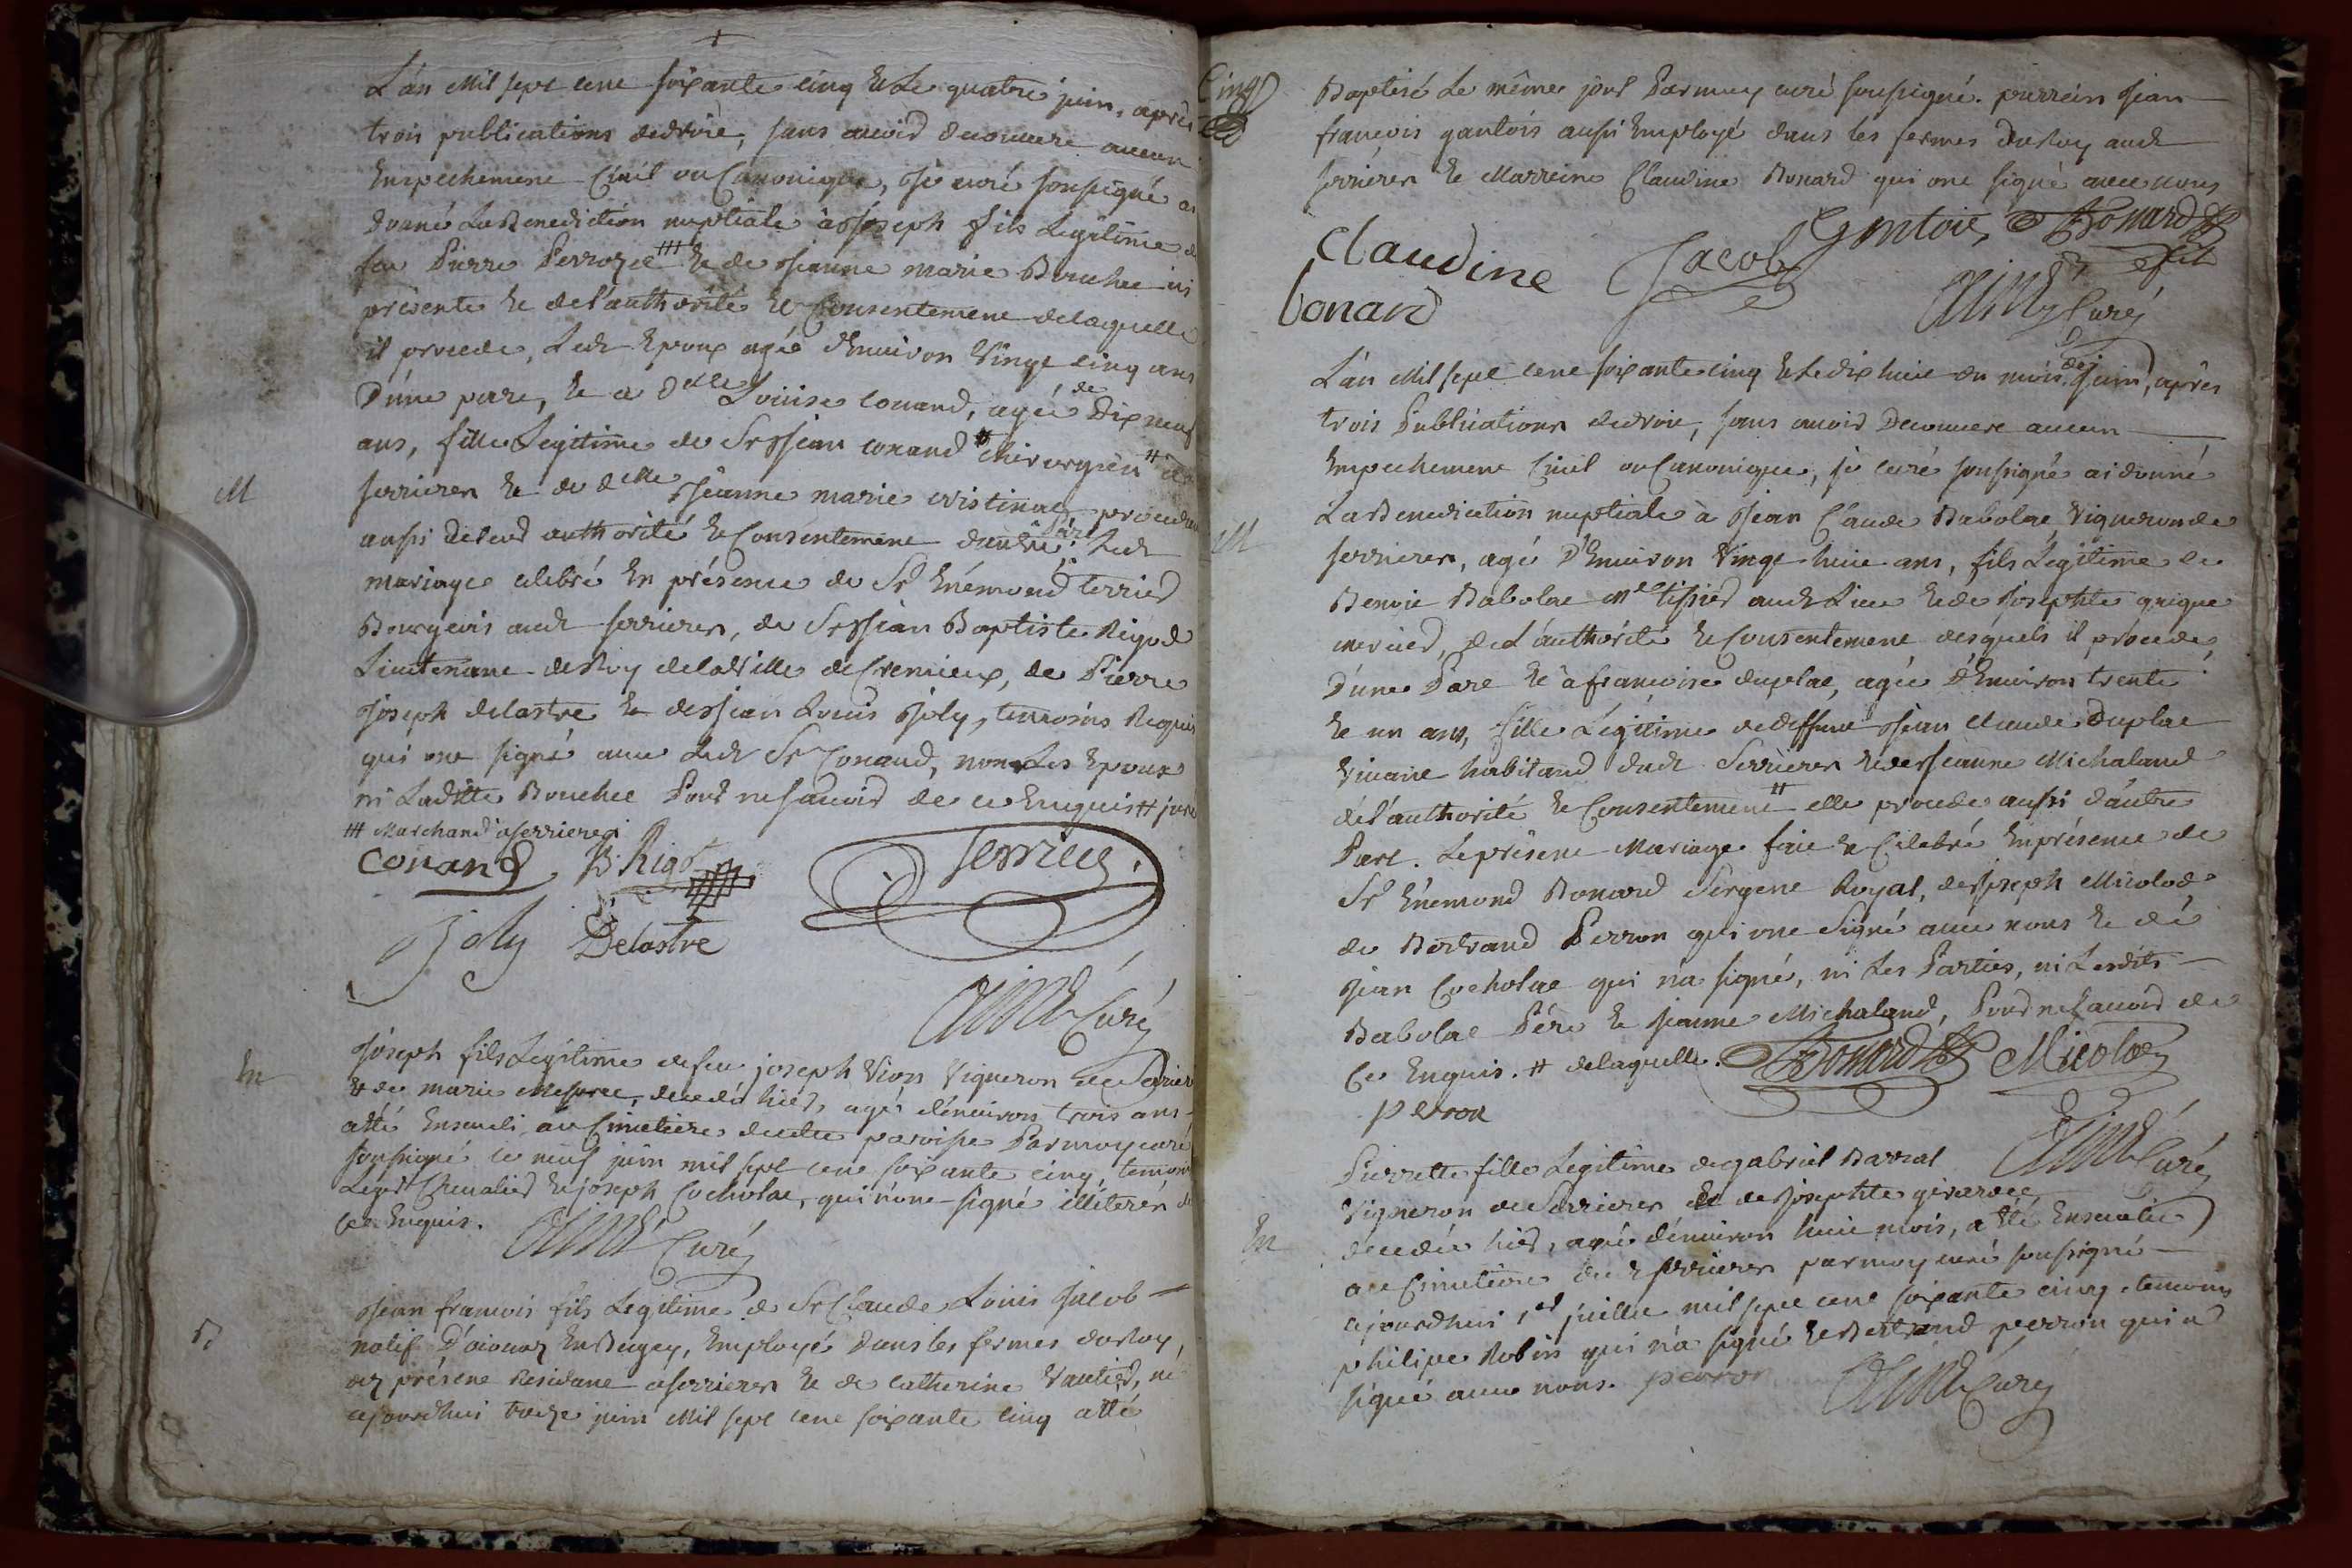 L'an Mil sept cent soixante cinq et Le quatre juin, après
trois publications de droit, sans avoir decouvert aucun
Empechement Civil ou Canonique, Je curé soussigné ai
donné La Benediction nuptiale à Joseph fils Legitime de
feu Pierre ⧻ et de Jeanne marie Bouchee ici
présente et de l'authorité et Consentement de laquelle
il procede, Ledt Epoux agé d'Environ Vingt cinq ans
D'une part, et a Delle Louise Conand, agée de Dix neuf
ans, fille Legitime de Sr Jean Conand # chirurgien # à
serrieres et de delle Jeanne marie procedant
aussi de leur authorité et Consentement d'autre part. Ledt
mariage celebré En présence de Sr Enémond terrier
Bourgeois audt serrieres, de Sr Jean Baptiste Rigod
Lieutenant de Roy de la Ville de Cremieux, de Pierre
Joseph delastre et de Jean Louis Joly, temoins Requis
qui ont signé avec Ledt Sr Conand, non Les Epoux
ni Laditte Bouchee Pour ne savoir de ce Enquis # juré
⧻ Marchand a serrieres
conand B. Rigod terrier
Joly Delastre
Curé
M
En
Joseph fils Legitime de feu joseph Vion Vigneron de Serrieres
et de marie decedé hier, agé d'environ trois ans
atté Enseveli au Cimetiere de cette paroisse Par moy curé
soussigné ce neuf juin mil sept cent soixante cinq, temoins
Chevalier et joseph Cocholat, qui n'ont signé illiterés de
ce Enquis. Curé
B
Jean francois fils Legitime de Sr Claude Louis Jacob
natif En Bugey, Employé Dans les fermes du Roy,
présent Residant a serrieres et de Catherine Vautier, né
ajourdhui treize juin Mil sept cent soixante cinq atté
Cinq
Baptisé Le même jour Par moy curé soussigné. parrein Jean
françois gantois aussi Employé dans les fermes du Roy audt
serrieres et Marreine Claudine Bonard qui ont signé avec nous
Claudine Jacob Gentois, Bonard
bonard Curé
M
L'an Mil sept cent soixante cinq et Le dix huit du mois de Juin, après
trois Publications de droit, sans avoir Decouvert aucun
Empechement Civil ou Canonique, je curé soussigné ai donné
La Benediction nuptiale à Jean Claude Babolat Vigneron de
serrieres, agé D'Environ Vingt huit ans, fils Legitime de
Benoit Babolat tissier audt Lieu et de Josephte
mercier, de L'authorité et Consentement desquels il procede,
D'une Part et à françoise duplat, agée D'Environ trente
et un ans, fille Legitime de deffunt Jean Claude Duplat
Vivant habitant dudt Serrieres et de Jeanne Michaland
de l'authorité et Consentement # elle procede aussi d'autre
Part. Le présent Mariage fait et Celebré En présence de
Sr Enemond Bonard Sergent Royal, de Joseph Micolod
de Bertrand Perron qui ont Signé avec nous et de
Jean Cocholat qui n'a signé, ni Les Parties, ni Lesdits
Babolat Pére et Jeanne Michaland, Pour ne savoir de
Ce Enquis. # de laquelle. Bonard Micolod
peron
Curé
En
Pierrette fille Legitime de gabriel Barral
Vigneron de Serrieres et de Josephte
decedée hier, agée d'environ huit mois, a été Ensevelie
au Cimetiere de serrieres par moy curé soussigné
ajourdhui 1er juillet mil sept cent soixante cinq temoins
philipe Robin qui n'a signé et Bertrand perron qui a
signé avec nous. perron Curé